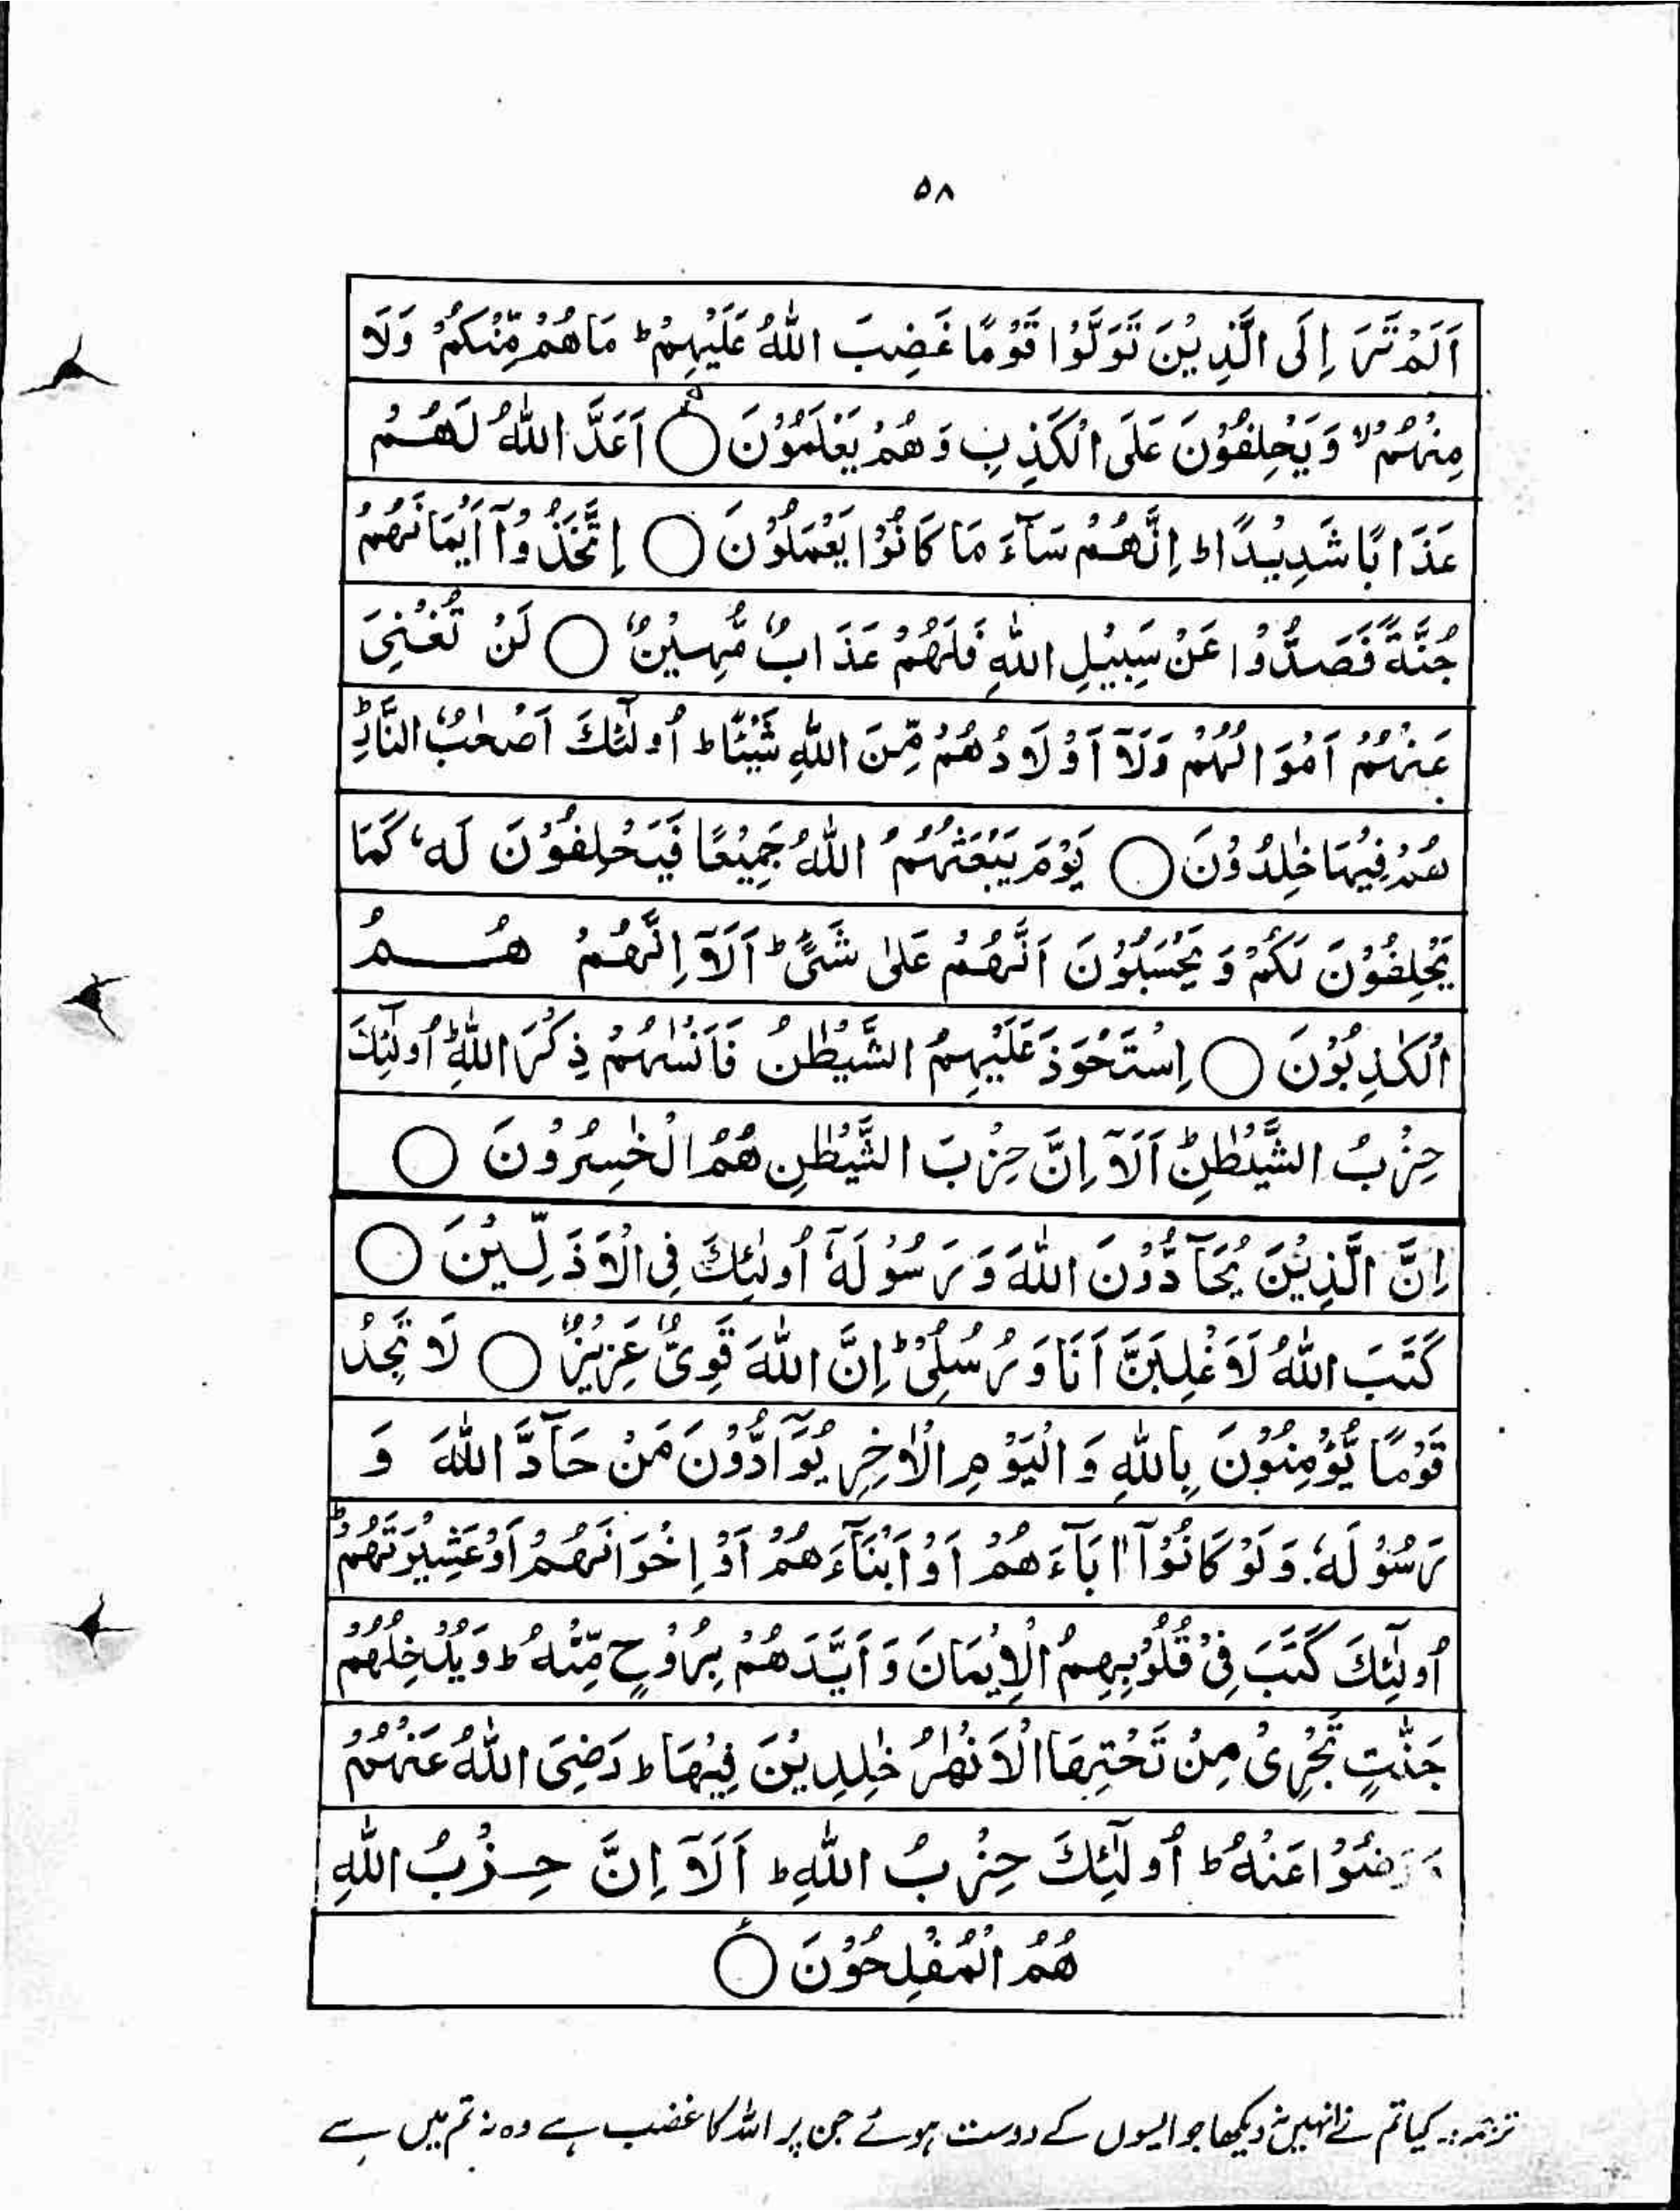 ۵۸
اَلَمْ تَرَ اِلَى الَّذِيْنَ تَوَلَّوْا قَوْمًا غَضِبَ اللّٰهُ عَلَيْهِمْ ؕ مَا هُمْ مِّنْكُمْ وَلَا
مِنْهُمْ ۙ وَيَحْلِفُوْنَ عَلَى الْكَذِبِ وَهُمْ يَعْلَمُوْنَ ○ اَعَدَّ اللّٰهُ لَهُمْ
عَذَابًا شَدِيْدًا ؕ اِنَّهُمْ سَآءَ مَا كَانُوْا يَعْمَلُوْنَ ○ اِتَّخَذُوْۤا اَيْمَانَهُمْ
جُنَّةً فَصَدُّوْا عَنْ سَبِيْلِ اللّٰهِ فَلَهُمْ عَذَابٌ مُّهِيْنٌ ○ لَنْ تُغْنِيَ
عَنْهُمْ اَمْوَالُهُمْ وَلَاۤ اَوْلَادُهُمْ مِّنَ اللّٰهِ شَيْئًا ؕ اُولٰٓئِكَ اَصْحٰبُ النَّارِ ؕ
هُمْ فِيْهَا خٰلِدُوْنَ ○ يَوْمَ يَبْعَثُهُمُ اللّٰهُ جَمِيْعًا فَيَحْلِفُوْنَ لَهٗ كَمَا
يَحْلِفُوْنَ لَكُمْ وَيَحْسَبُوْنَ اَنَّهُمْ عَلٰى شَىْءٍ ؕ اَلَاۤ اِنَّهُمْ هُمُ
الْكٰذِبُوْنَ ○ اِسْتَحْوَذَ عَلَيْهِمُ الشَّيْطٰنُ فَاَنْسٰهُمْ ذِكْرَ اللّٰهِ ؕ اُولٰٓئِكَ
حِزْبُ الشَّيْطٰنِ ؕ اَلَاۤ اِنَّ حِزْبَ الشَّيْطٰنِ هُمُ الْخٰسِرُوْنَ ○
اِنَّ الَّذِيْنَ يُحَآدُّوْنَ اللّٰهَ وَرَسُوْلَهٗۤ اُولٰٓئِكَ فِى الْاَذَلِّيْنَ ○
كَتَبَ اللّٰهُ لَاَغْلِبَنَّ اَنَا وَرُسُلِىْ ؕ اِنَّ اللّٰهَ قَوِىٌّ عَزِيْزٌ ○ لَا تَجِدُ
قَوْمًا يُّؤْمِنُوْنَ بِاللّٰهِ وَالْيَوْمِ الْاٰخِرِ يُوَآدُّوْنَ مَنْ حَآدَّ اللّٰهَ وَ
رَسُوْلَهٗ وَلَوْ كَانُوْۤا اٰبَآءَهُمْ اَوْ اَبْنَآءَهُمْ اَوْ اِخْوَانَهُمْ اَوْ عَشِيْرَتَهُمْ ؕ
اُولٰٓئِكَ كَتَبَ فِىْ قُلُوْبِهِمُ الْاِيْمَانَ وَاَيَّدَهُمْ بِرُوْحٍ مِّنْهُ ؕ وَيُدْخِلُهُمْ
جَنّٰتٍ تَجْرِىْ مِنْ تَحْتِهَا الْاَنْهٰرُ خٰلِدِيْنَ فِيْهَا ؕ رَضِىَ اللّٰهُ عَنْهُمْ
وَرَضُوْا عَنْهُ ؕ اُولٰٓئِكَ حِزْبُ اللّٰهِ ؕ اَلَاۤ اِنَّ حِزْبَ اللّٰهِ
هُمُ الْمُفْلِحُوْنَ ○
ترجمہ:۔ کیا تم نے انہیں نہ دیکھا جو ایسوں کے دوست ہوئے جن پر اللہ کا غضب ہے وہ نہ تم میں سے